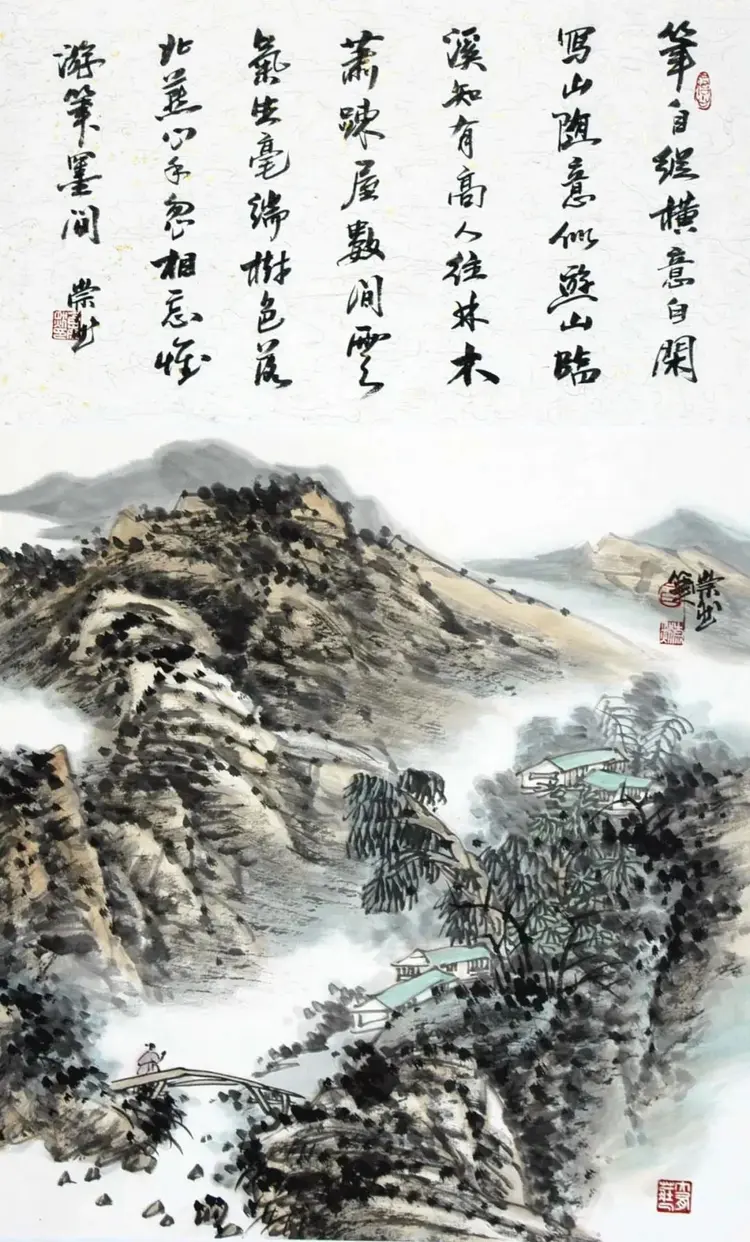 筆自縱橫意自閑
写山随意似遊山臨
溪知有高人住林木
蕭踈屋數間雲
氣生毫端樹色落
心手忽相忘惟
游筆墨間 崇
崇